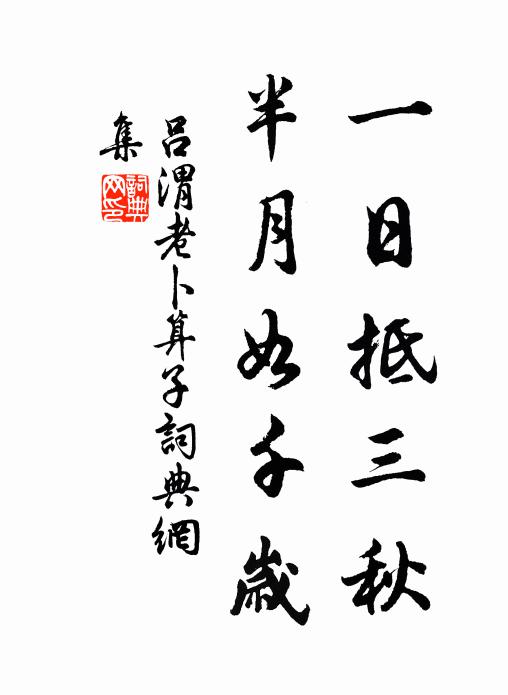 一日抵三秋
半月如千歲
呂渭老卜算子詞典網
集
詞典
網印